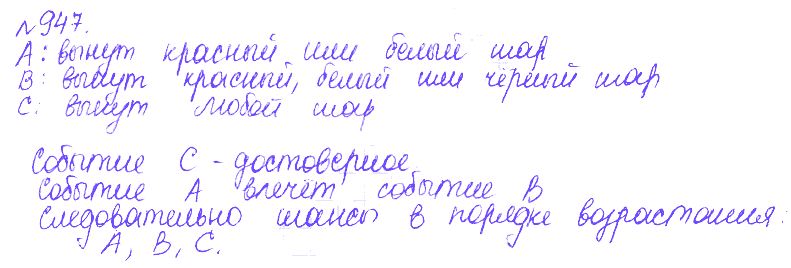 №947.
А: вынут красный или белый шар
В: вынут красный, белый или чёрный шар
С: вынут любой шар
Событие С - достоверное
Событие А влечёт событие В
Следовательно шансы в порядке возрастания:
А, В, С.